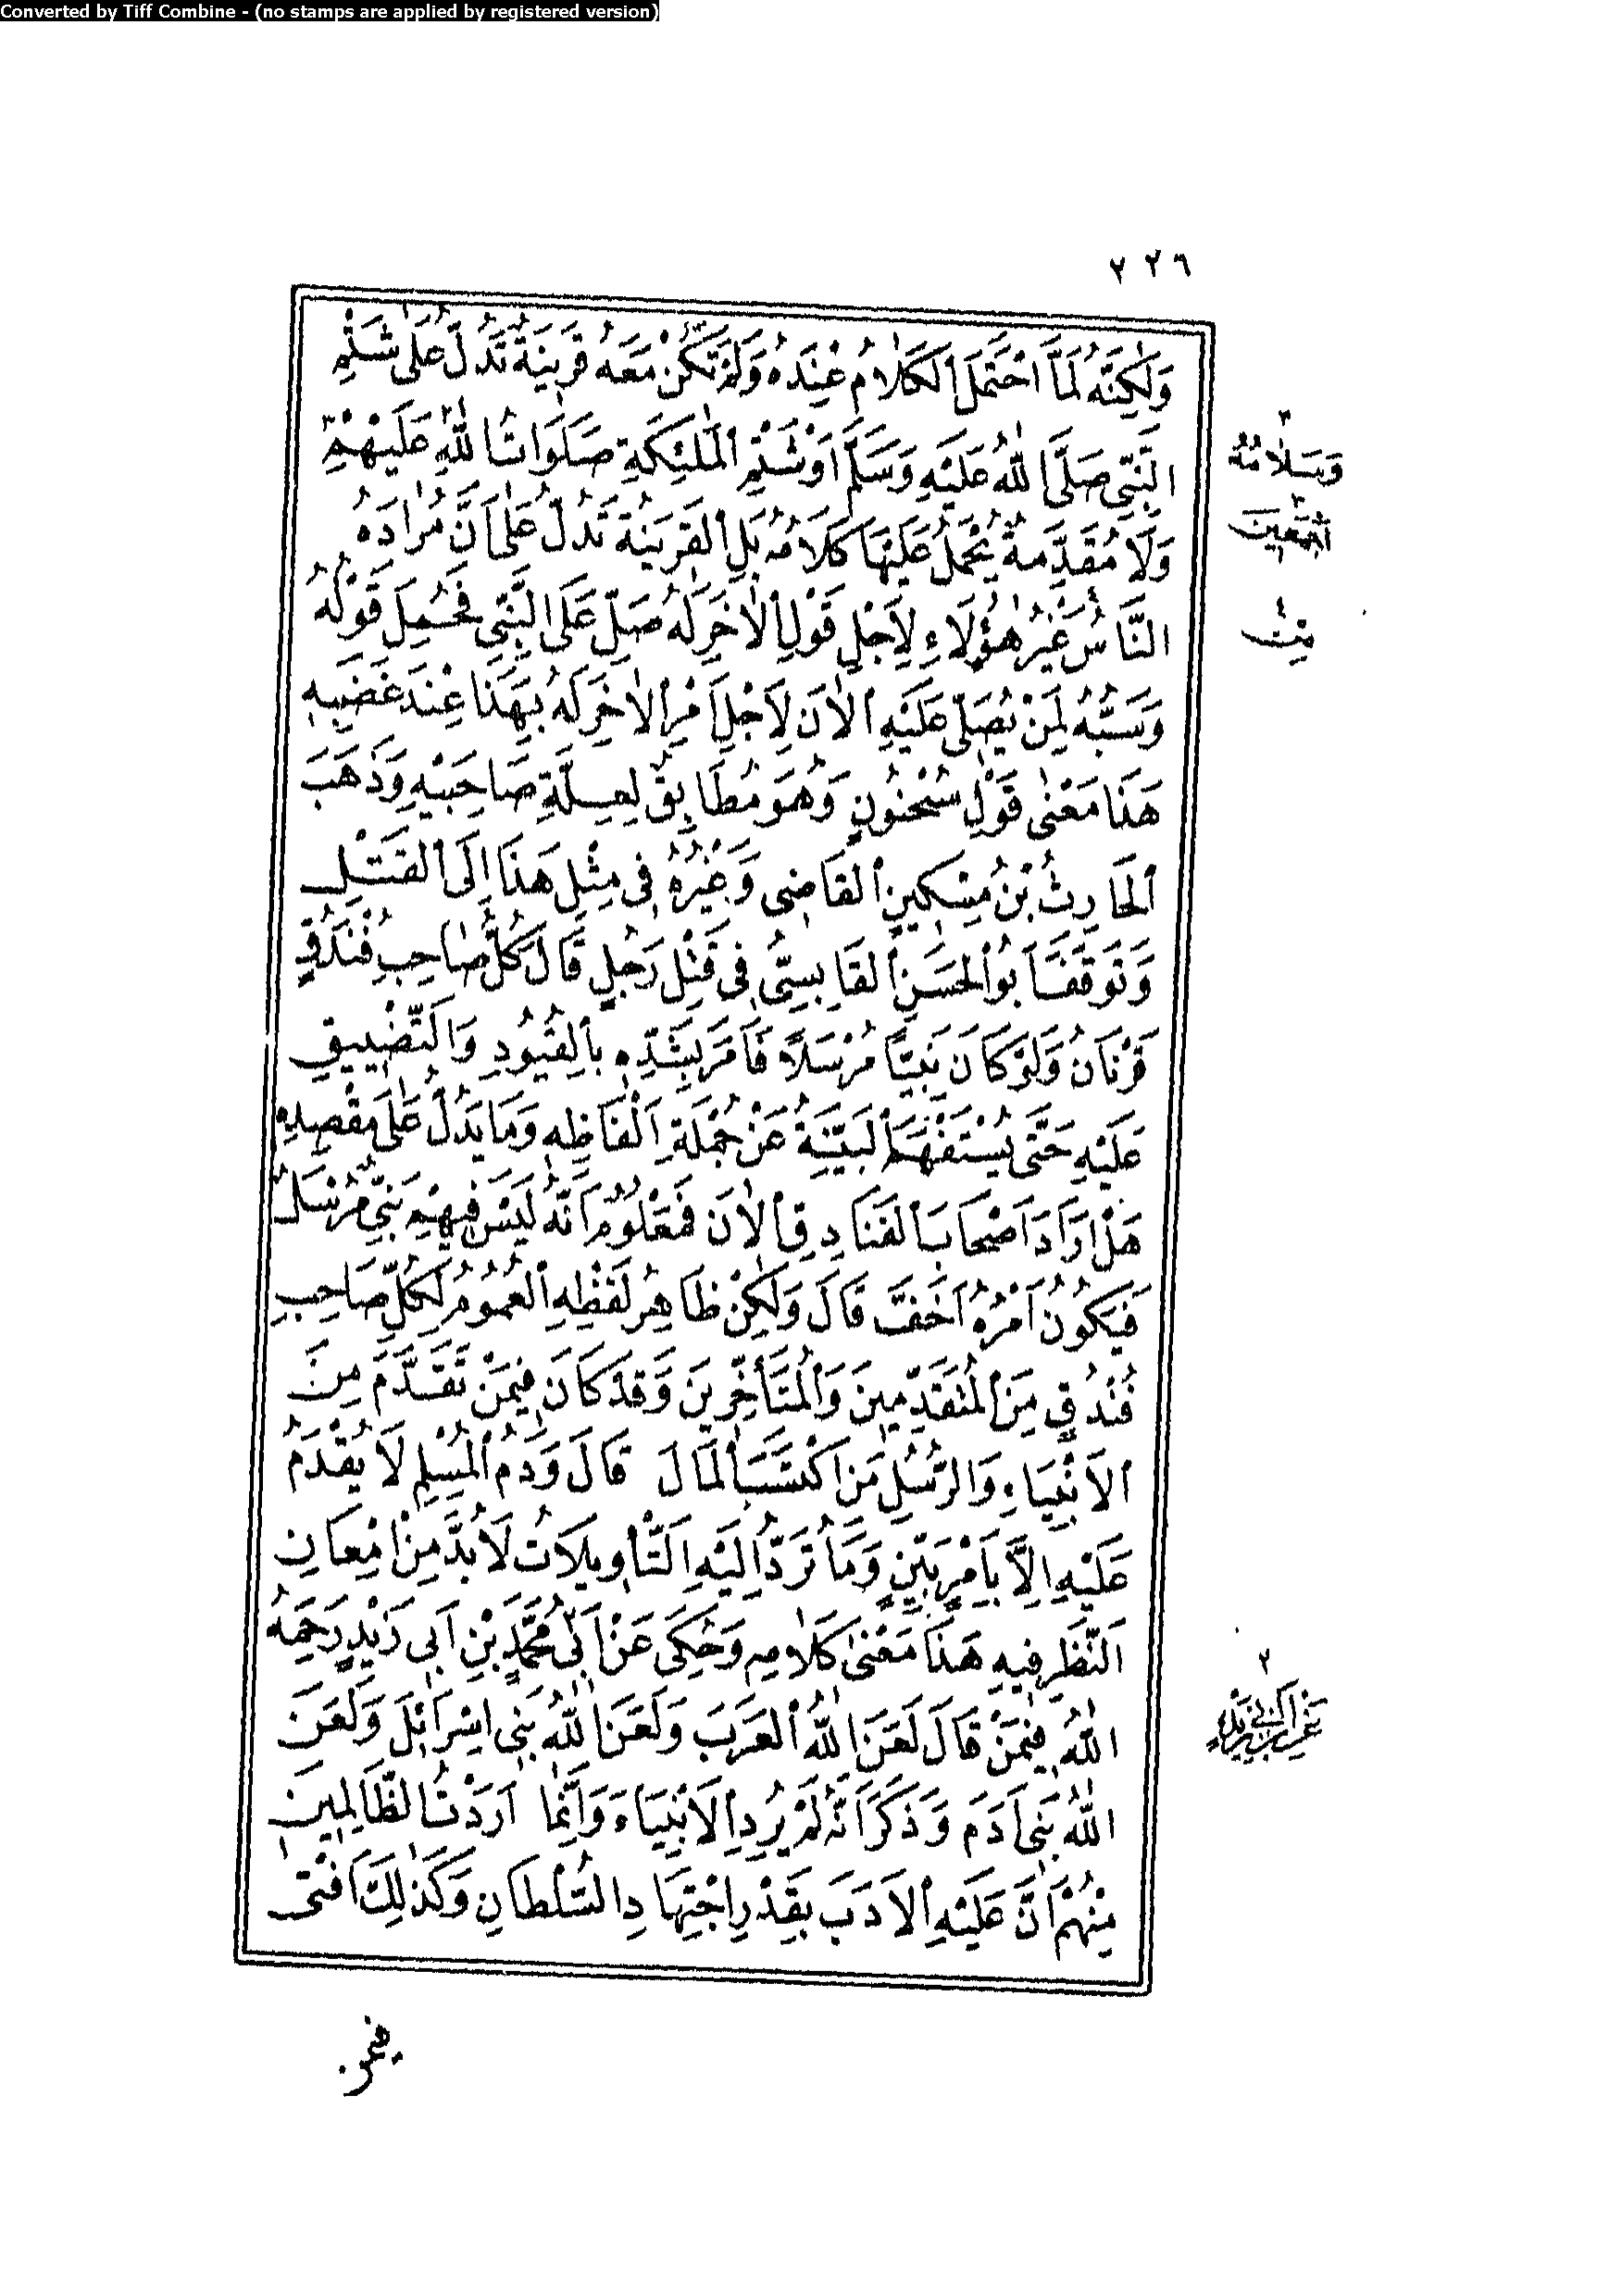 Converted by Tiff Combine - (no stamps are applied by registered version)
٢٢٦
وَلٰكِنَّهُ لَمَّا احْتَمَلَ الْكَلَامُ عِنْدَهُ وَلَمْ تَكُنْ مَعَهُ قَرِينَةٌ تَدُلُّ عَلٰى شَتْمِ
النَّبِيِّ صَلَّى اللّٰهُ عَلَيْهِ وَسَلَّمَ اَوْ شَتْمِ الْمَلٰئِكَةِ صَلَوَاتُ اللّٰهِ عَلَيْهِمْ
وَلَا مُقَدِّمَةٌ يُحْمَلُ عَلَيْهَا كَلَامُهُ بَلِ الْقَرِينَةُ تَدُلُّ عَلٰى اَنَّ مُرَادَهُ
النَّاسُ غَيْرُ هٰؤُلَاءِ لِاَجْلِ قَوْلِ الْاٰخَرِ لَهُ صَلِّ عَلَى النَّبِيِّ فَحُمِلَ قَوْلُهُ
وَسَبُّهُ لِمَنْ يُصَلِّى عَلَيْهِ الْاٰنَ لِاَجْلِ اَمْرِ الْاٰخَرِ لَهُ بِهٰذَا عِنْدَ غَضَبِهِ
هٰذَا مَعْنٰى قَوْلِ سُحْنُونٍ وَهُوَ مُطَابِقٌ لِعِلَّةِ صَاحِبَيْهِ وَذَهَبَ
الْحَارِثُ بْنُ مِسْكِينٍ الْقَاضِى وَغَيْرُهُ فِى مِثْلِ هٰذَا اِلَى الْقَتْلِ
وَتَوَقَّفَ اَبُو الْحَسَنِ الْقَابِسِيُّ فِى قَتْلِ رَجُلٍ قَالَ كُلُّ صَاحِبِ فُنْدُقٍ
قَرْنَانُ وَلَوْ كَانَ نَبِيًّا مُرْسَلًا فَاَمَرَ بِشَدِّهِ بِالْقُيُودِ وَالتَّضْيِيقِ
عَلَيْهِ حَتّٰى يُسْتَفْهَمَ الْبَيِّنَةُ عَنْ جُمْلَةِ اَلْفَاظِهِ وَمَا يَدُلُّ عَلٰى مَقْصِدِهِ
هَلْ اَرَادَ اَصْحَابَ الْفَنَادِقِ الْاٰنَ فَمَعْلُومٌ اَنَّهُ لَيْسَ فِيهِمْ نَبِيٌّ مُرْسَلٌ
فَيَكُونُ اَمْرُهُ اَخَفَّ قَالَ وَلٰكِنْ ظَاهِرُ لَفْظِهِ الْعُمُومُ لِكُلِّ صَاحِبِ
فُنْدُقٍ مِنَ الْمُتَقَدِّمِينَ وَالْمُتَأَخِّرِينَ وَقَدْ كَانَ فِيمَنْ تَقَدَّمَ مِنَ
الْاَنْبِيَاءِ وَالرُّسُلِ مَنِ اكْتَسَبَ الْمَالَ قَالَ وَدَمُ الْمُسْلِمِ لَا يُقْدَمُ
عَلَيْهِ اِلَّا بِاَمْرٍ بَيِّنٍ وَمَا تُرَدُّ اِلَيْهِ التَّأْوِيلَاتُ لَا بُدَّ مِنْ اِمْعَانِ
النَّظَرِ فِيهِ هٰذَا مَعْنٰى كَلَامِهِ وَحُكِىَ عَنْ اَبِى مُحَمَّدِ بْنِ اَبِى زَيْدٍ رَحِمَهُ
اللّٰهُ فِيمَنْ قَالَ لَعَنَ اللّٰهُ الْعَرَبَ وَلَعَنَ اللّٰهُ بَنِى اِسْرَائِلَ وَلَعَنَ
اللّٰهُ بَنِى اٰدَمَ وَذَكَرَ اَنَّهُ لَمْ يُرِدِ الْاَنْبِيَاءَ وَاِنَّمَا اَرَدْتُ الظَّالِمِينَ
مِنْهُمْ اَنَّ عَلَيْهِ الْاَدَبَ بِقَدْرِ اجْتِهَادِ السُّلْطَانِ وَكَذٰلِكَ اَفْتٰى
٣
وَسَلَامُهُ
٢
اَجْمَعِينَ
٤
٢